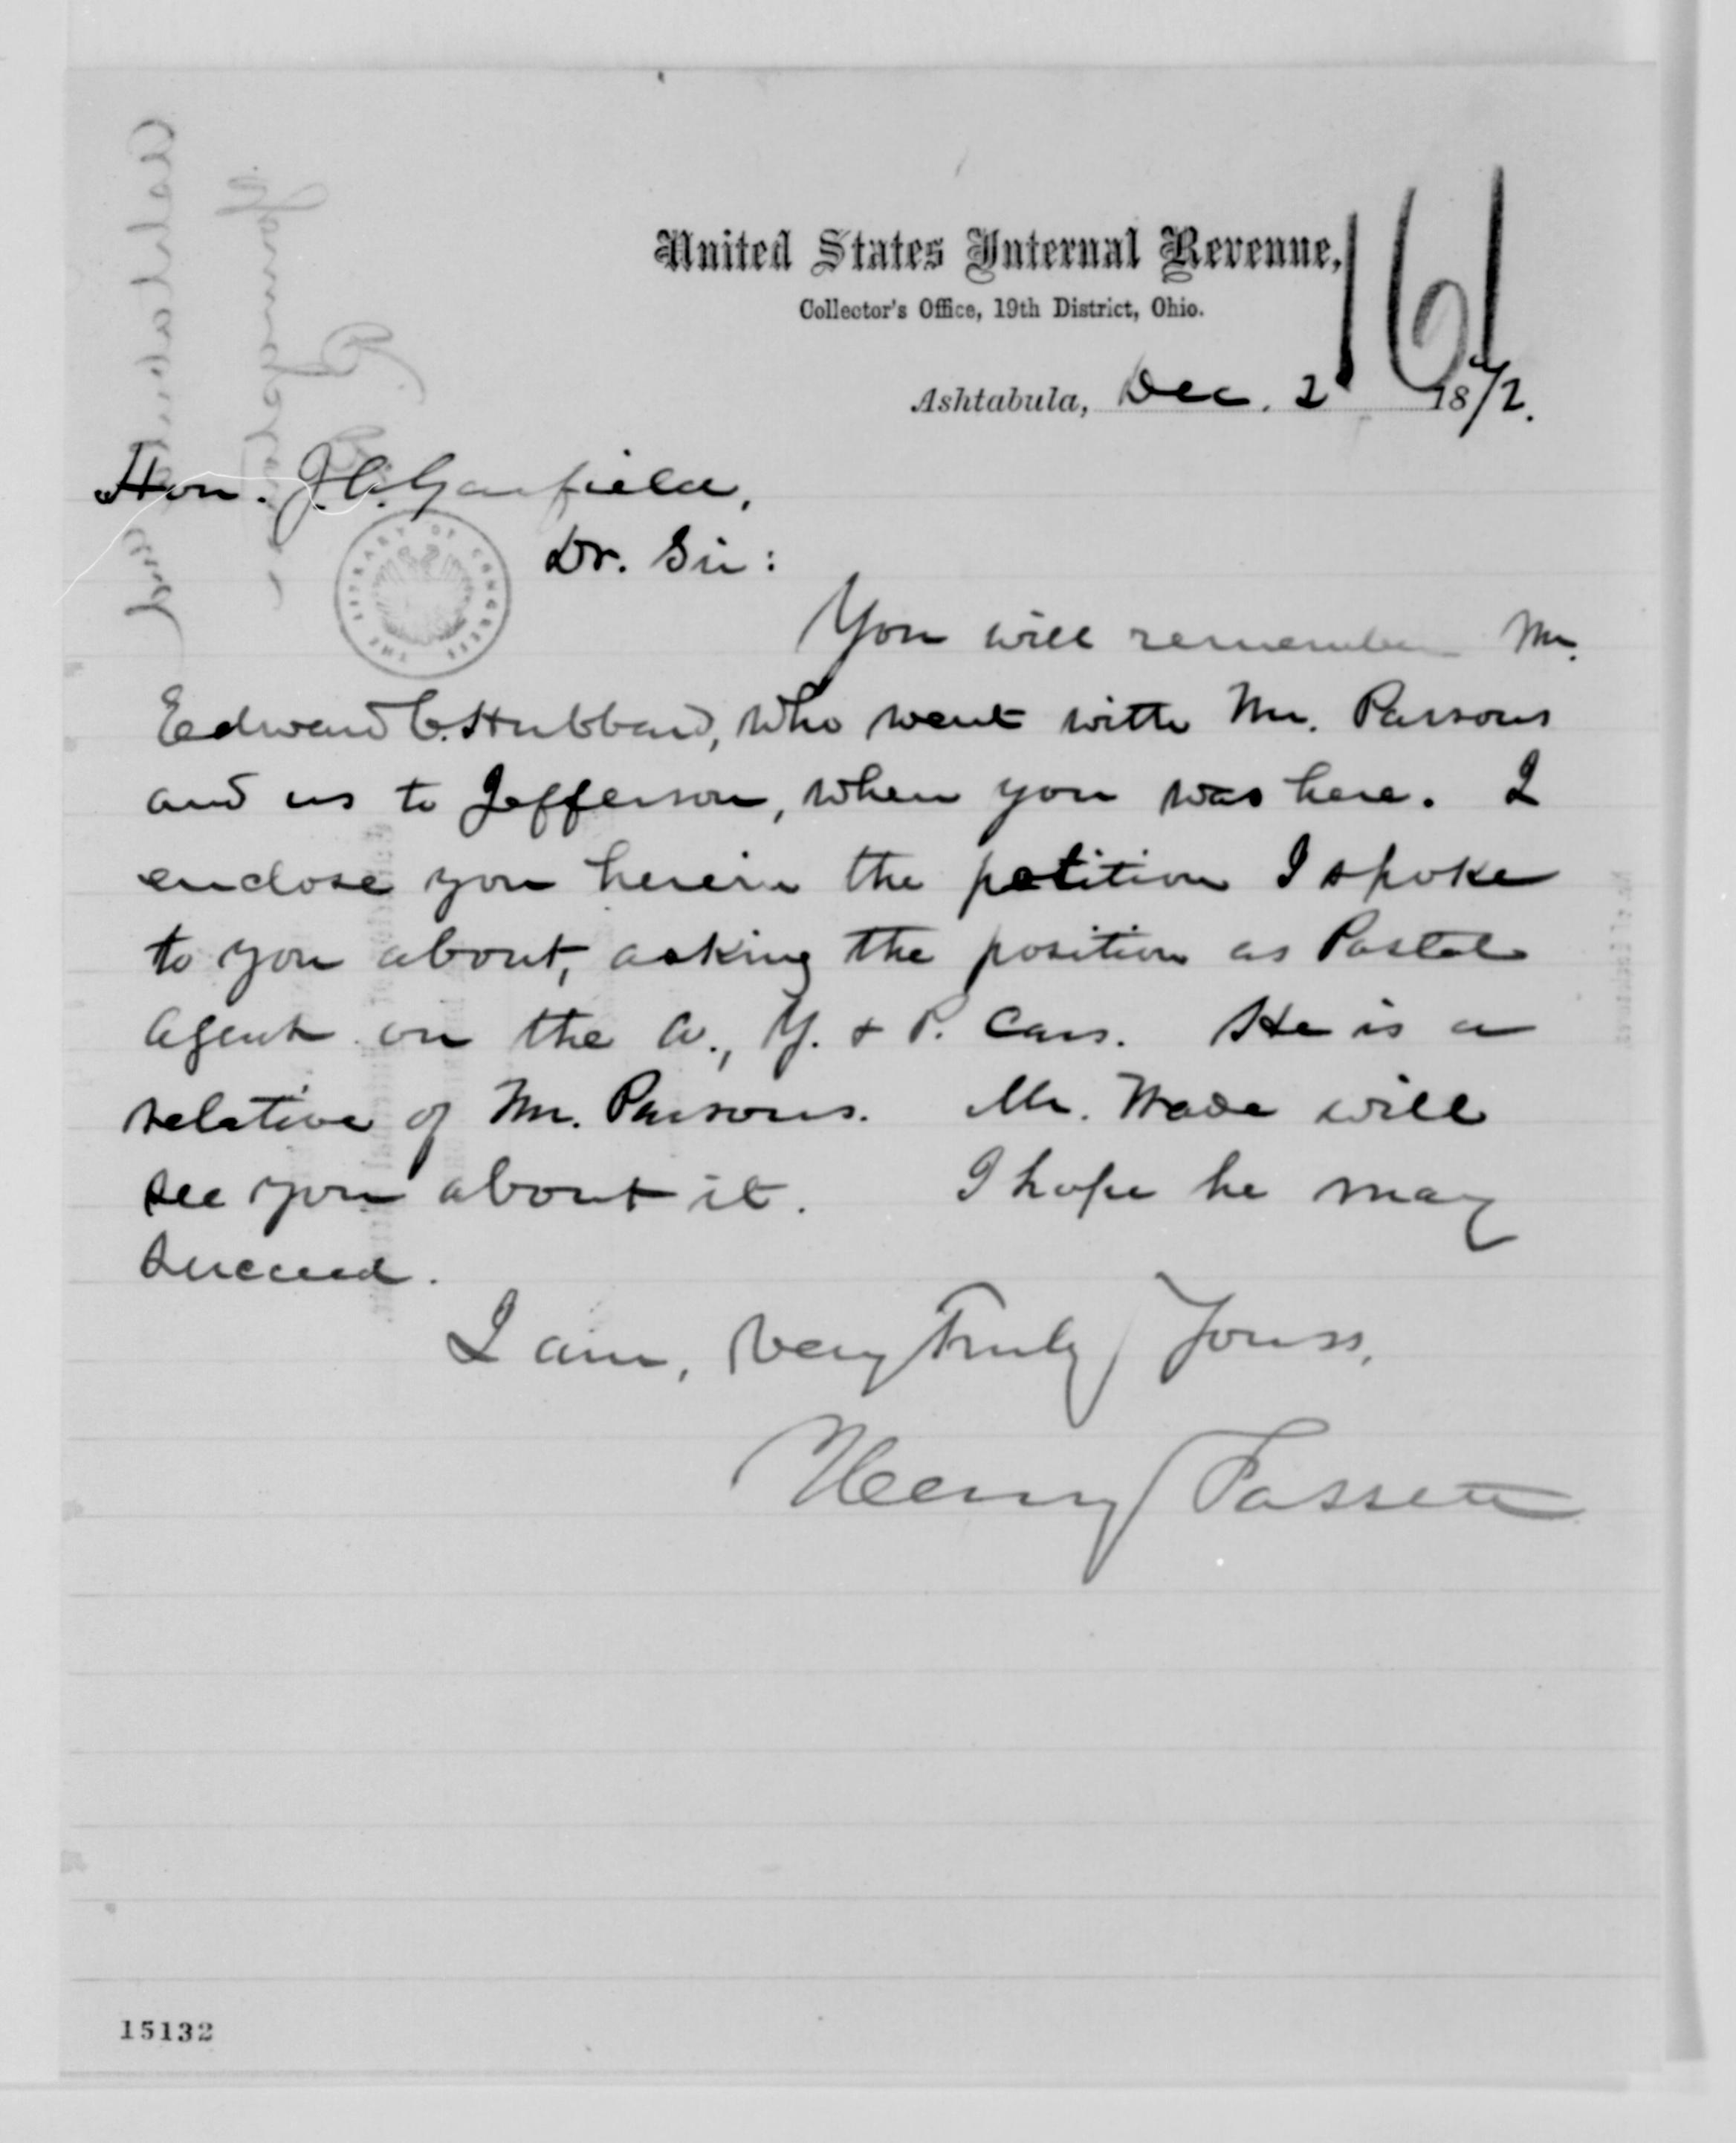 161
United States Internal Revenue,
Collector's Office, 19th District, Ohio.
Ashtabula, Dec. 2 1872.
Hon. J. A. Garfield,
Dr. Sir:
THE LIBRARY OF CONGRESS
You will remember Mr.
Edward C. Hubbard, who went with Mr. Parsons
and us to Jefferson, when you was here. I
enclose you herein the petition I spoke
to you about, asking the position as Postal
Agent on the A., Y. & P. Cars. He is a
relative of Mr. Parsons. Mr. Wade will
see you about it. I hope he may
succeed.
I am, Very Truly Yours,
Henry Fassett
15132